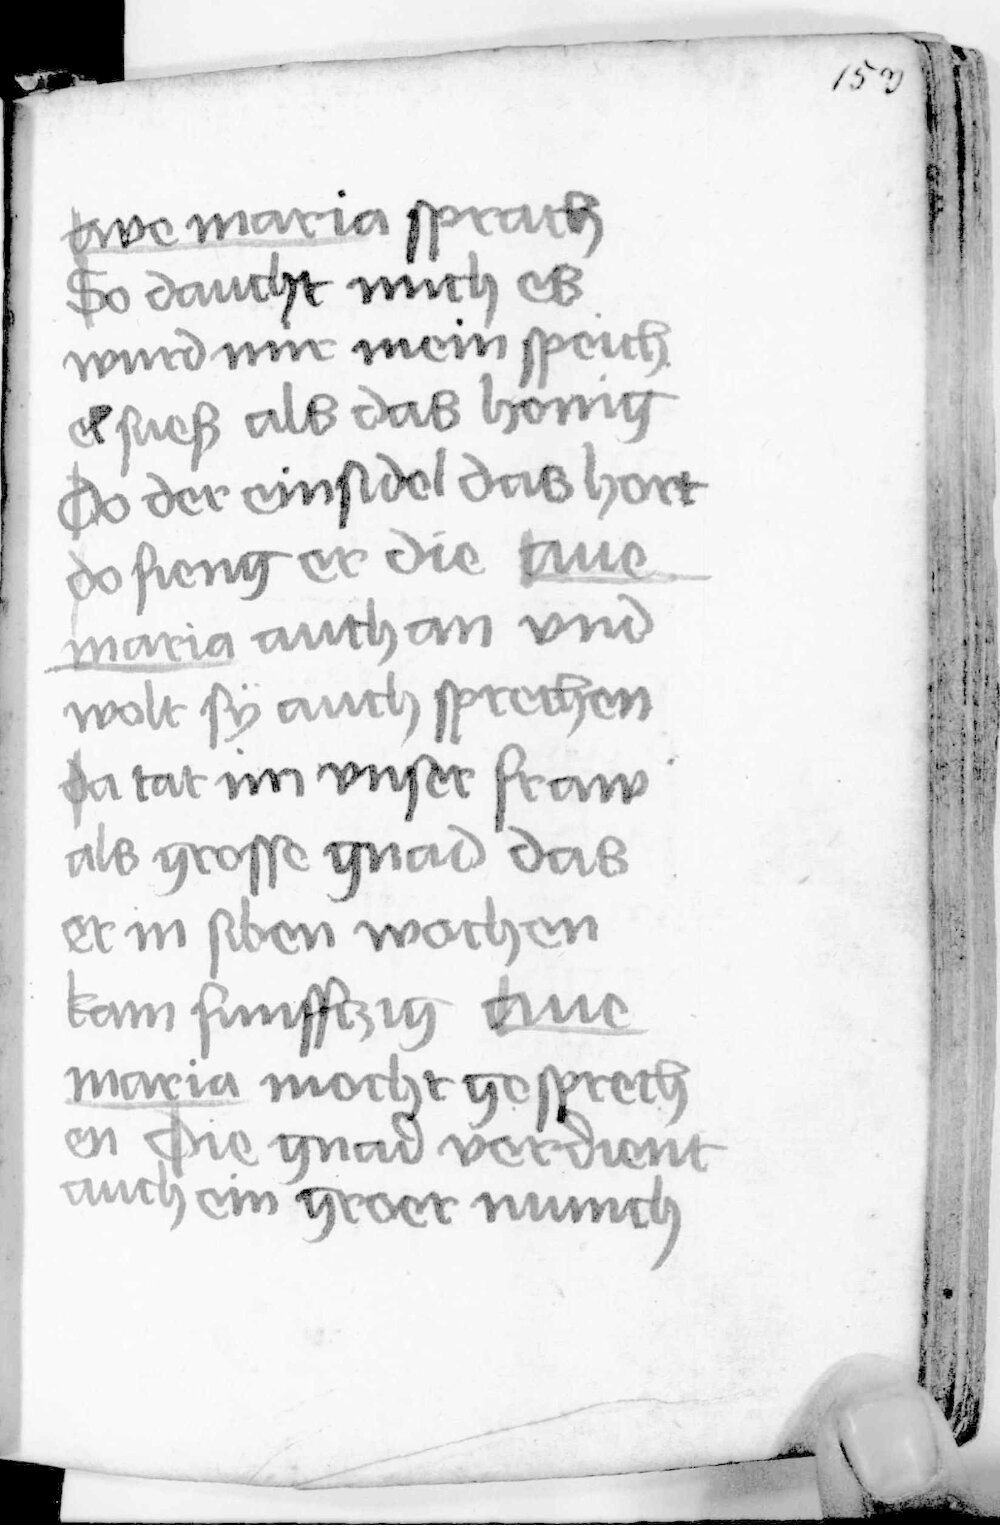 153
Ave maria sprach
So daucht mich es
wurd mir mein speich
el sueß als das honig
Do der einsidel das hort
do fieng er die Aue
maria auch an vnd
wolt sÿ auch sprechen
da tat im vnser fraw
als grosse gnad das
er in siben wochen
kam funfftzig Aue
maria mocht gesprech
en Die gnad verdient
auch ein groer munch